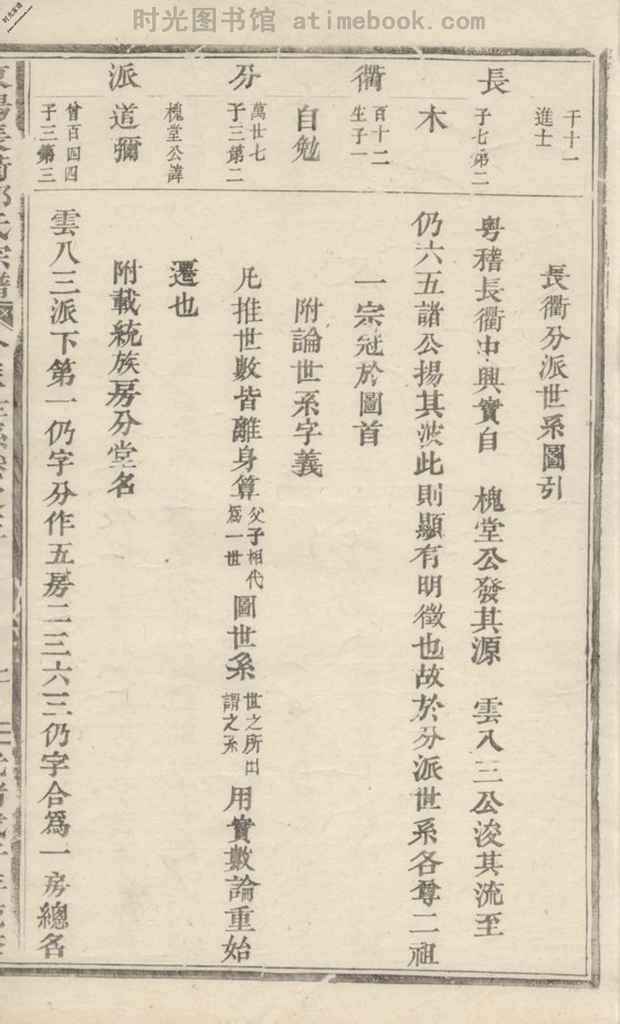 时光图书馆 atimebook.com
长衢分派
千十一
進士
子七第二
木
百十二
生子一
自勉
萬廿七
于三第二
槐堂公諱
道彌
曾百四四
于三第三
長衢分派世系圖引
粵稽長衢中興實自 槐堂公發其源 雲八三公浚其流至
仍六五諸公揚其波此則顯有明徵也故於分派世系各尊二祖
一宗冠於圖首
附論世系字義
凡推世數皆離身算父子相代為一世圖世系世之所出謂之系用實數論重始
遷也
附載統族房分堂名
雲八三派下第一仍字分作五房二三六三仍字合爲一房總名